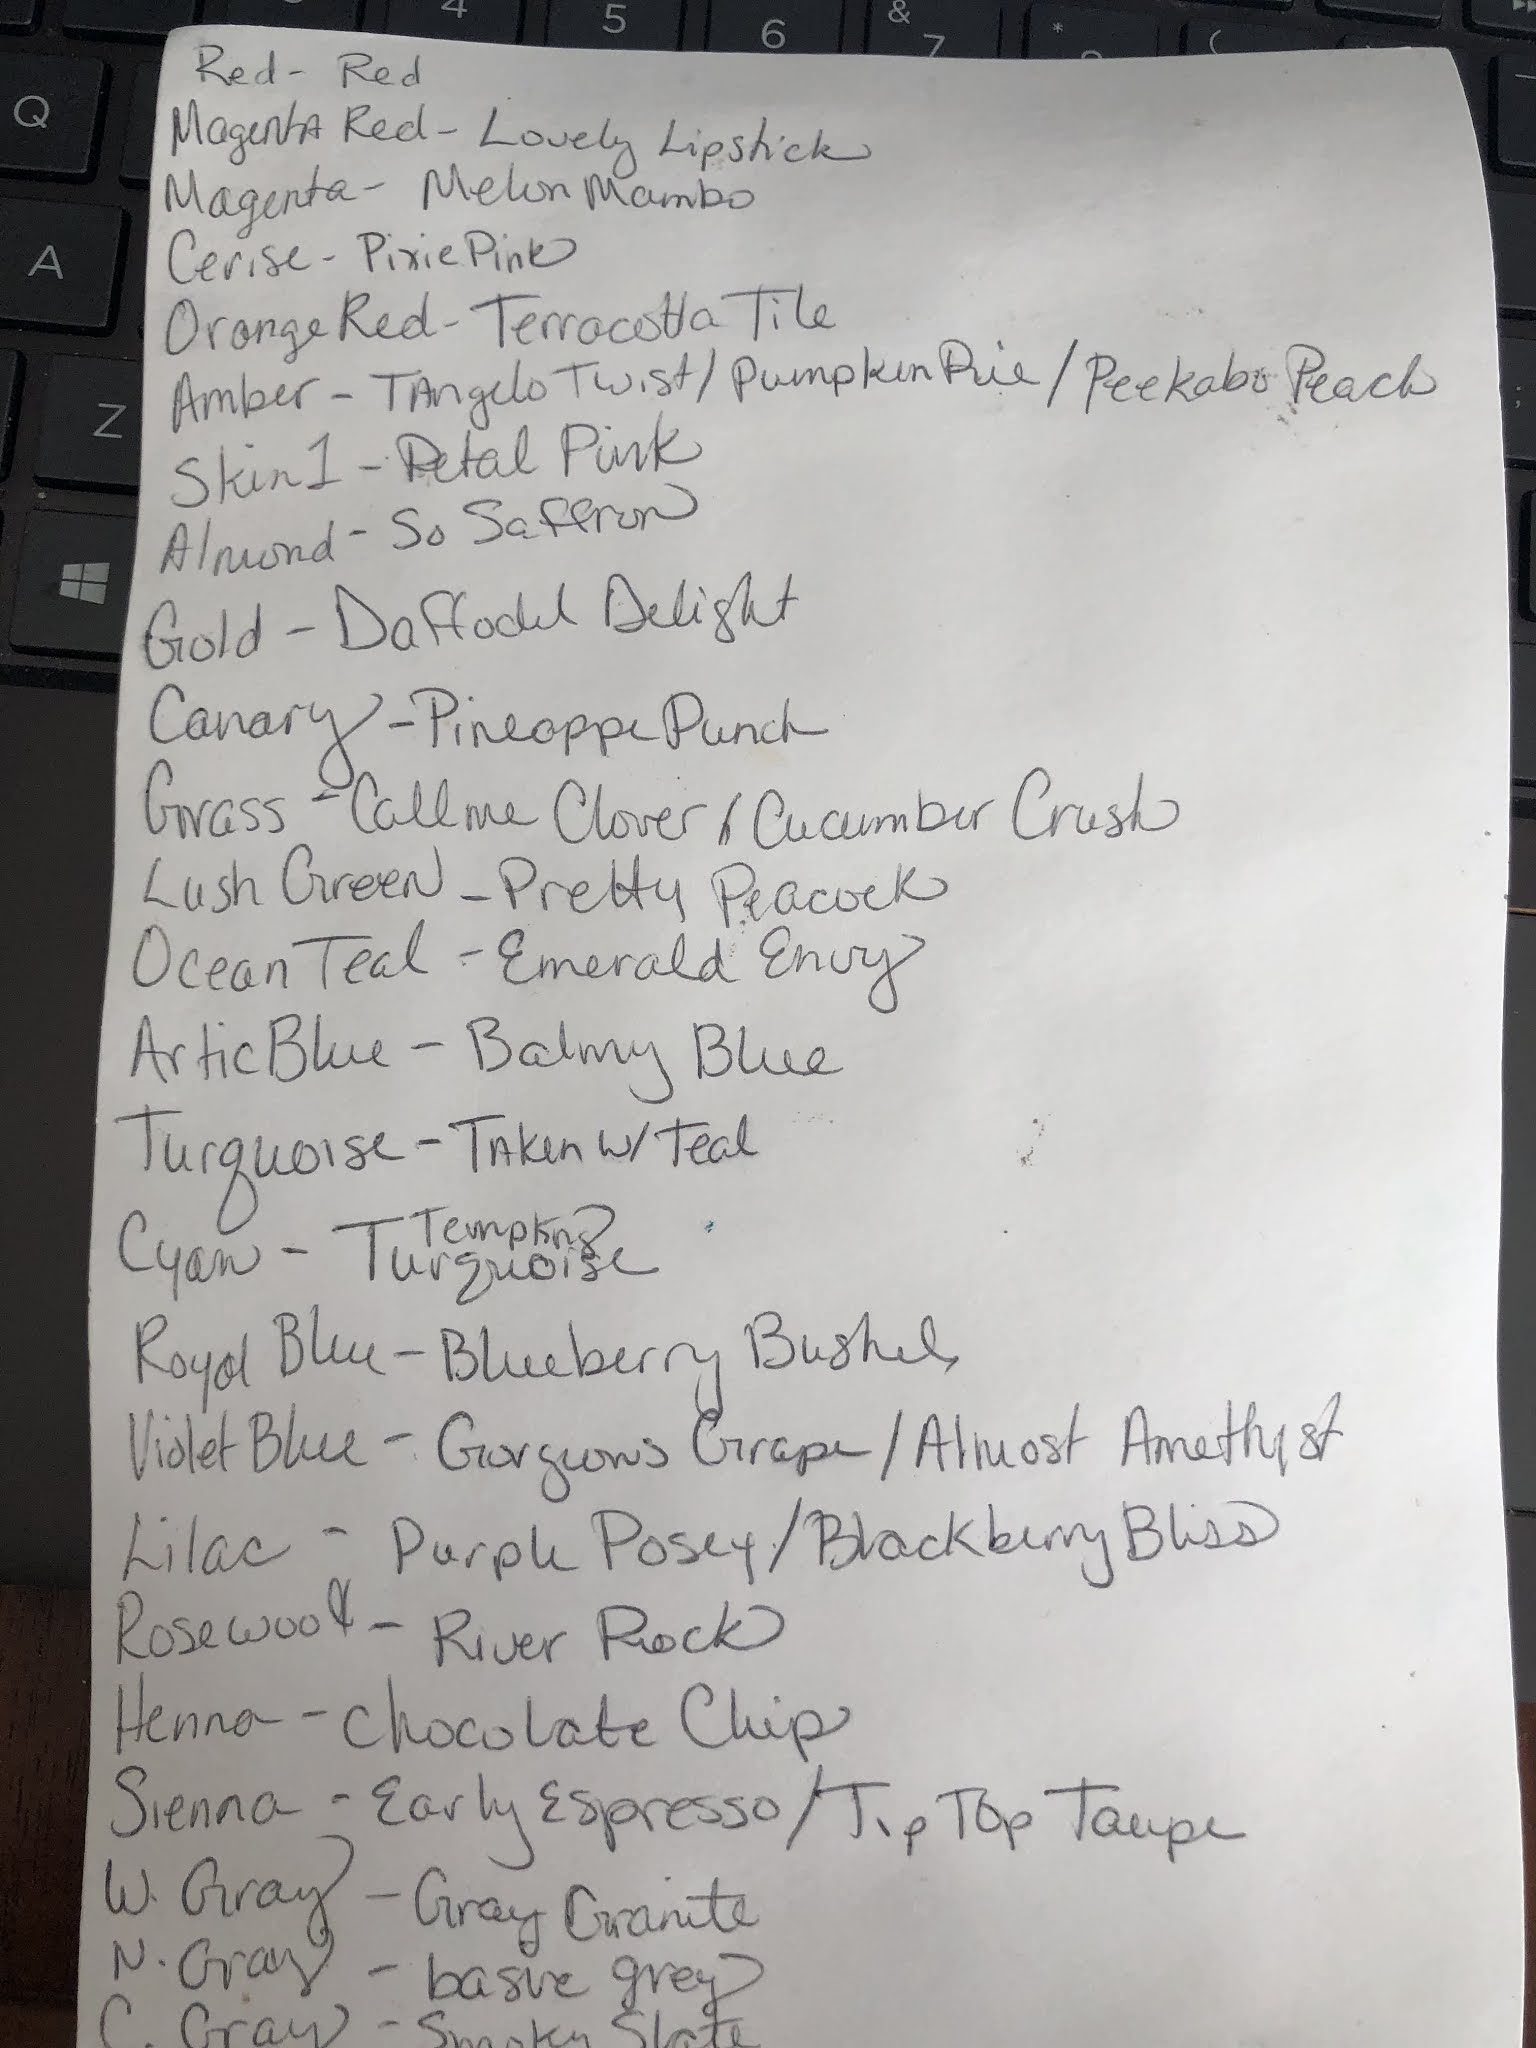 4 5 6 & 7 *
Q
A
Z
Red - Red
Magenta Red - Lovely Lipstick
Magenta - Melon Mambo
Cerise - Pixie Pink
Orange Red - Terracotta Tile
Amber - Tangelo Twist / Pumpkin Pie / Peekabo Peach
Skin 1 - Petal Pink
Almond - So Saffron
Gold - Daffodil Delight
Canary - Pineappe Punch
Grass - Call me Clover / Cucumber Crush
Lush Green - Pretty Peacock
Ocean Teal - Emerald Envy
Artic Blue - Balmy Blue
Turquoise - Taken w/ Teal
Cyan - Tempting Turquoise
Royal Blue - Blueberry Bushel
Violet Blue - Gorgeous Grape / Almost Amethyst
Lilac - Purple Posey / Blackberry Bliss
Rosewood - River Rock
Henna - Chocolate Chip
Sienna - Early Espresso / Tip Top Taupe
W. Gray - Gray Granite
N. Gray - basic grey
C. Gray - Smoky Slate